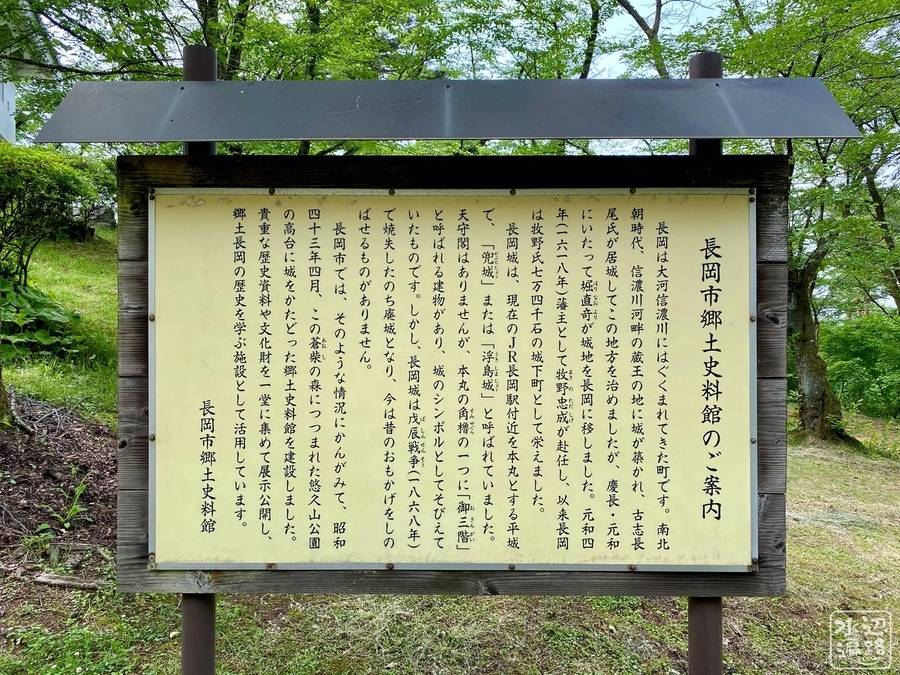 長岡市郷土史料館のご案内
長岡は大河信濃川にはぐくまれてきた町です。南北
朝時代、信濃川河畔の蔵王の地に城が築かれ、古志長
尾氏が居城してこの地方を治めましたが、慶長・元和
にいたって堀直竒が城地を長岡に移しました。元和四
年(一六一八年)藩主として牧野忠成が赴任し、以来長岡
は牧野氏七万四千石の城下町として栄えました。
長岡城は、現在のJR長岡駅付近を本丸とする平城
で、「兜城」または「浮島城」と呼ばれていました。
天守閣はありませんが、本丸の角櫓の一つに「御三階」
と呼ばれる建物があり、城のシンボルとしてそびえて
いたものです。しかし、長岡城は戊辰戦争(一八六八年)
で焼失したのち廃城となり、今は昔のおもかげをしの
ばせるものがありません。
長岡市では、そのような情況にかんがみて、昭和
四十三年四月、この蒼柴の森につつまれた悠久山公園
の高台に城をかたどった郷土史料館を建設しました。
貴重な歴史資料や文化財を一堂に集めて展示公開し、
郷土長岡の歴史を学ぶ施設として活用しています。
長岡市郷土史料館